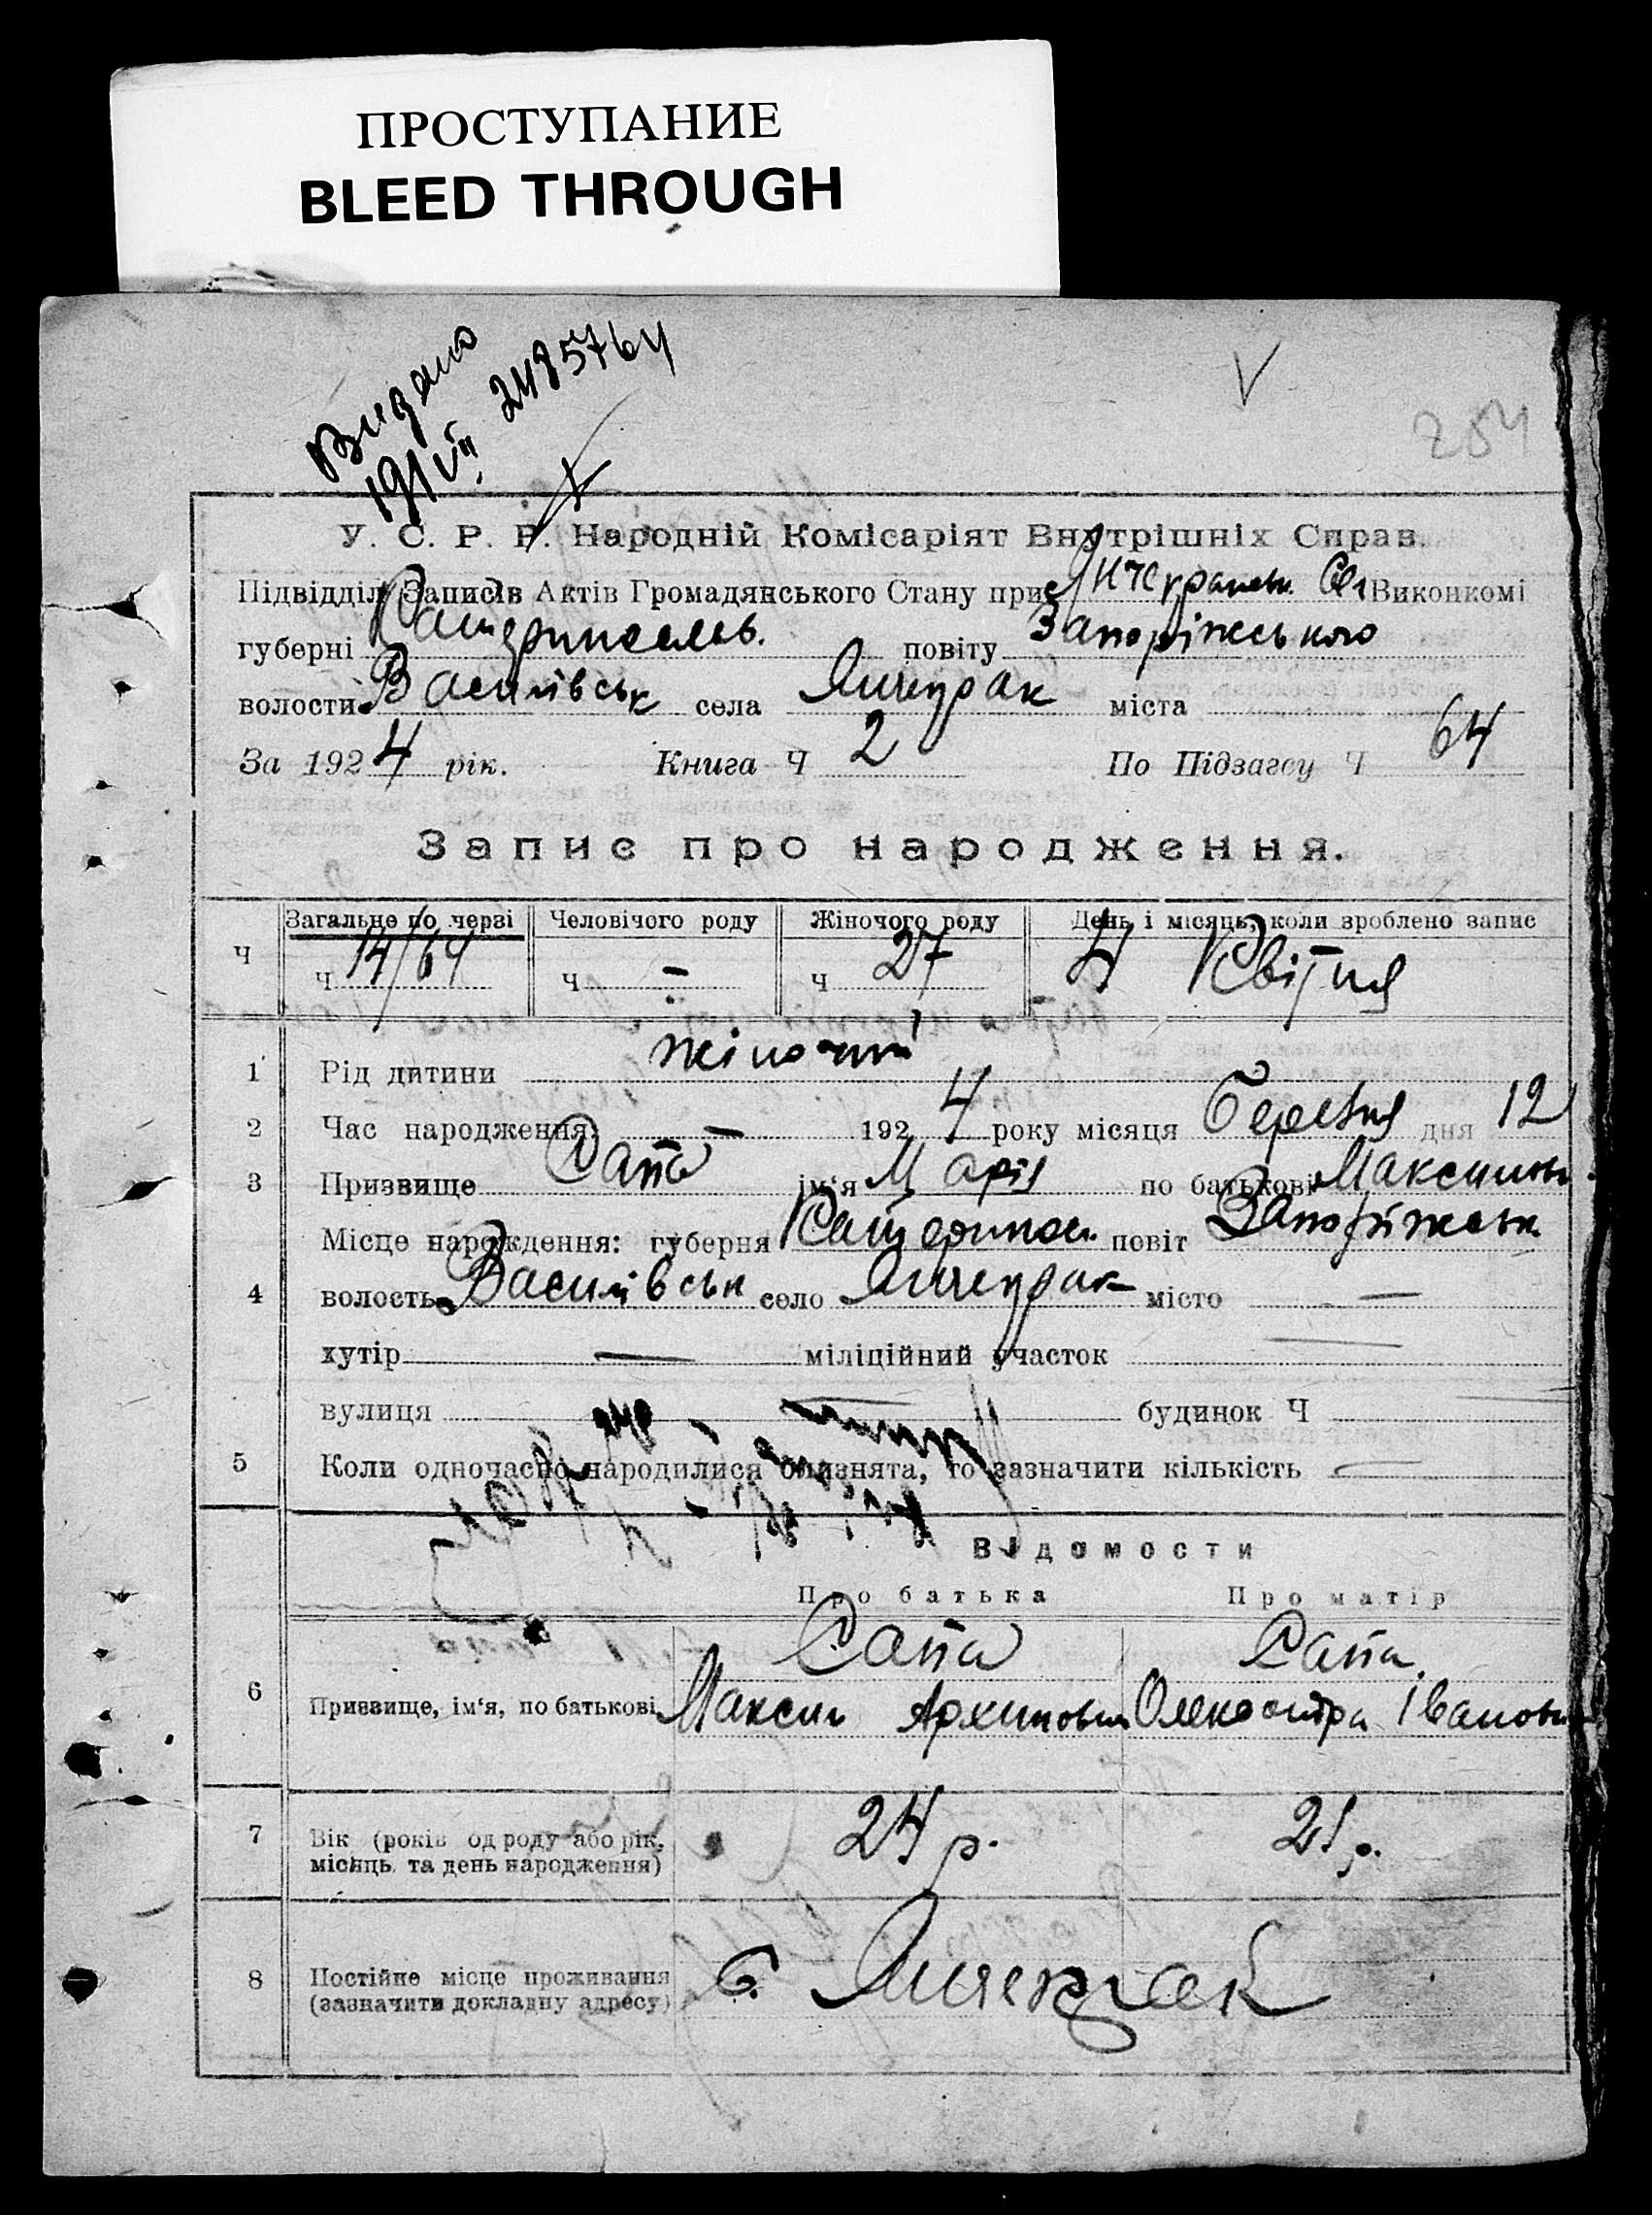 ПРОСТУПАНИЕ
BLEED THROUGH
Видано
2485764
V
254
У. С. Р. Р. Народній Комісаріят Внутрішніх Справ.
Підвідділ Записів Актів Громадянського Стану при Виконкомі
губерні Катеринослав. повіту Запоріжського
волости Василівськ села Янчекрак міста
За 1924 рік. Книга Ч 2 По Підзагсу Ч 64
Запис про народження.
Ч Загальне по черзі Человічого роду Жіночого роду День і місяць, коли зроблено запис
Ч 14/64 Ч — Ч 27 4 Квітня
1 Рід дитини жіночий
2 Час народження — 1924 року місяця Березня дня 12
3 Призвище Сапа ім'я Марія по батькові Максимов.
Місце народження: губерня Катеринос. повіт Запоріжськ.
4 волость Василівськ село Янчекрак місто —
хутір — міліційний участок —
вулиця — будинок Ч —
5 Коли одночасно народилися близнята, то зазначити кількість —
Відомости
Про батька Про матір
Сапа Сапа
6 Призвище, ім'я, по батькові Максим Архипович Олександра Іванов
7 Вік (років од роду або рік, місяць та день народження) 24 р. 21 р.
8 Постійне місце проживання (зазначити докладну адресу) С. Янчекрак